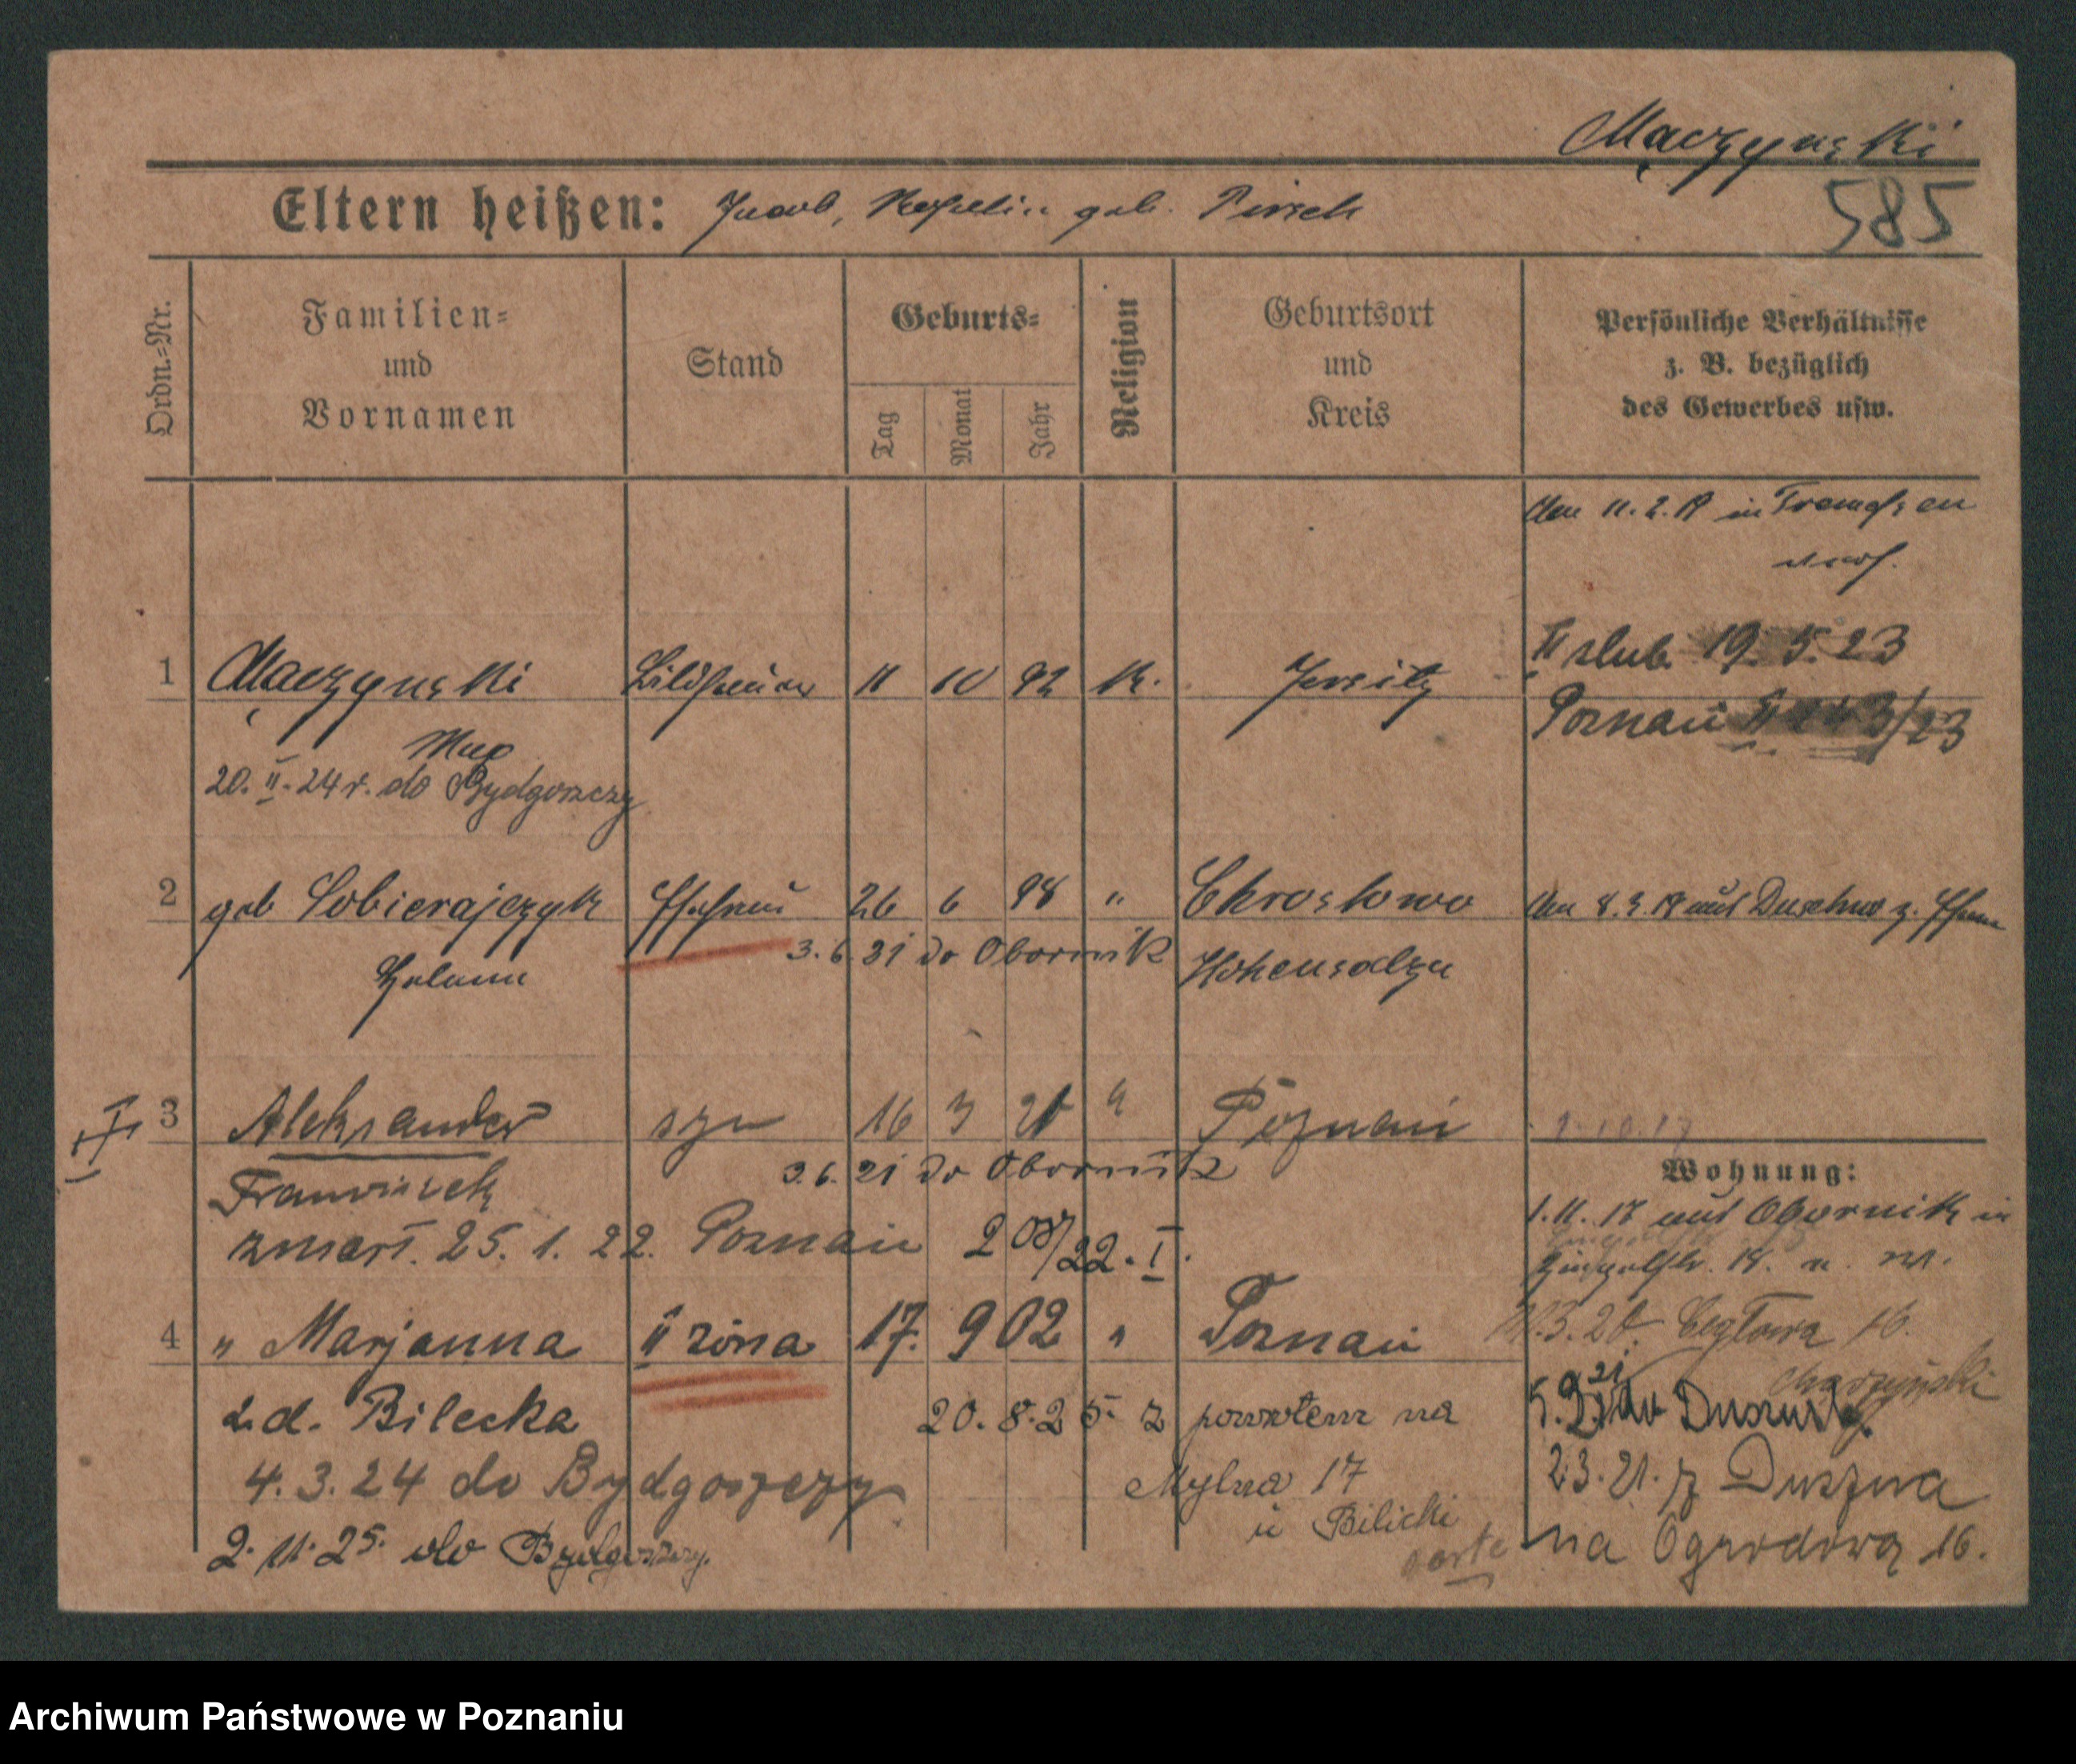 Mączynski
585
Eltern heißen: Jacob, geb. Pirsch
Ordn.=Nr.
Familien=
und
Vornamen
Stand
Geburts=
Tag
Monat
Jahr
Religion
Geburtsort
und
Kreis
Persönliche Verhältnisse
z. B. bezüglich
des Gewerbes usw.
Am 11.2.19 in
1 Mączynski Bildhauer 11 10 92 K. Jersitz
II slub 19.5.23
Poznań II 443/23
Max
20.II.24 r. do Bydgoszczy
2 geb Sobierajczyk Ehefrau 26 6 98 " Chrostowo
Am 8.3.19 aus Duschno z. Ehem
3.6.21 do Obornik
Helena
Hohensalza
3 Aleksander syn 16 3 20 " Poznań
3.6.21 do Obornik
Franciszek
zmarł. 25.1.22. Poznań 208/22.I.
Wohnung:
1.11.18 aus Obornik in
18. n. M.
4 " Marjanna II żona 17. 9 02 " Poznań
3.20. Ceglowa 16.
z.d. Bilecka
20.8.25 z powrotem na
Mylna 17
u Bilicki
4.3.24 do Bydgoszczy
2.11.25. do Bydgoszczy.
23.21. z Duszna
na Ogrodową 16.
Archiwum Państwowe w Poznaniu